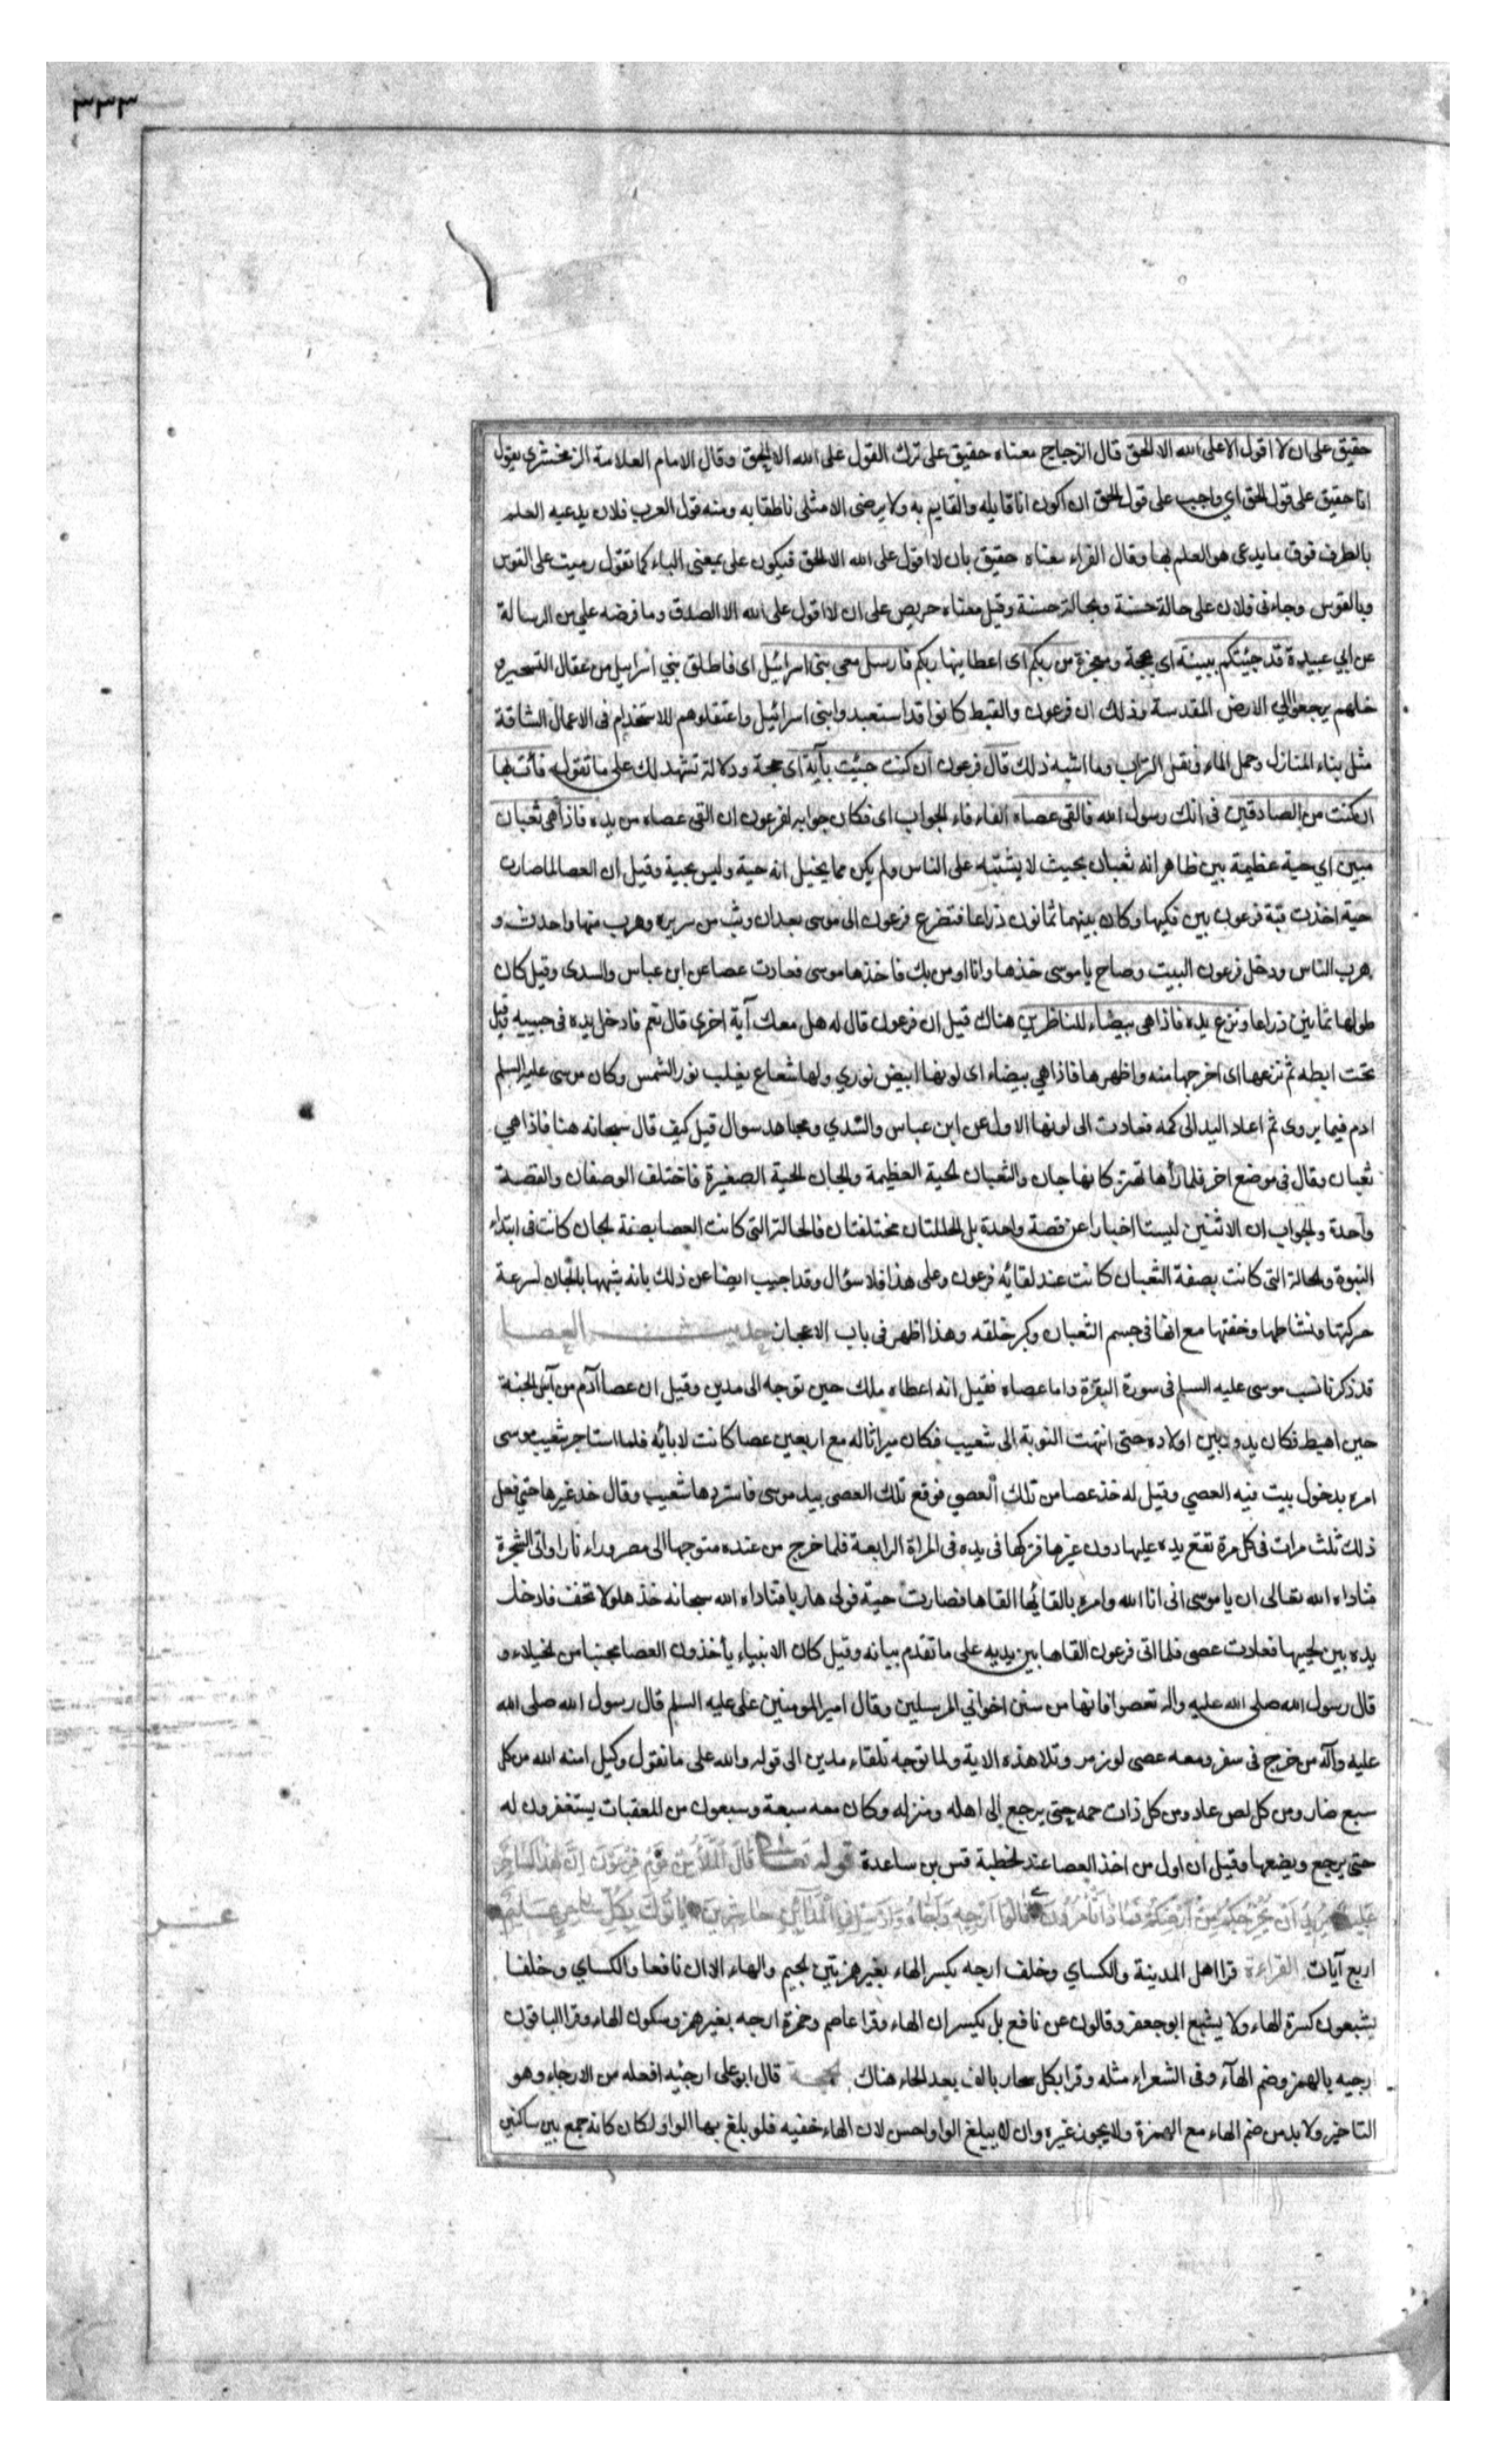 ٣٣٣
حقيق على ان لا اقول الا على الله الا الحق قال الزجاج معناه حقيق على ترك القول على الله الا الحق وقال الامام العلامة الزمخشري يقول
انا حقيق على قول الحق اي واجب على قول الحق ان اكون انا قايله والقايم به ولا يرضى الا مثلى ناطقا به ومنه قول العرب فلان يدعيه العلم
بالطرف فوق ما يدعى هو العلم بها وقال الفراء معناه حقيق بان لا اقول على الله الا الحق فيكون على بمعنى الباء كما تقول رميت على القوس
وبالقوس وجاءنى فلان على حالة حسنة وبحالة حسنة وقيل معناه حريص على ان لا اقول على الله الا الصدق وما فرضه على من الرسالة
عن ابي عبيدة قد جئتكم ببينة اى بحجة ومعجزة من ربكم اى اعطانيها ربكم فارسل معى بنى اسرائيل اى فاطلق بني اسرايل من عقال التسخير و
خلهم يرجعوا الي الارض المقدسة وذلك ان فرعون والقبط كانوا قد استعبدوا بنى اسرائيل واعتقلوهم للاستخدام فى الاعمال الشاقة
مثل بناء المنازل وحمل الماء ونقل التراب وما اشبه ذلك قال فرعون ان كنت جئت بآية اى بحجة ودلالة تشهد لك على ما تقوله فأت بها
ان كنت من الصادقين فى انك رسول الله فالقى عصاه الفاء فاء الجواب اى فكان جوابه لفرعون ان القى عصاه من يده فاذا هى ثعبان
مبين اي حية عظيمة بين ظاهر انه ثعبان بحيث لا يشتبه على الناس ولم يكن مما يخيل انه حية وليس بحية وقيل ان العصا لما صارت
حية اخذت قبة فرعون بين فكيها وكان بينهما ثمانون ذراعا فتضرع فرعون الى موسى بعد ان وثب من سريره وهرب منها واحدث و
هرب الناس ودخل فرعون البيت وصاح يا موسى خذها وانا اومن بك فاخذها موسى فعادت عصا عن ابن عباس والسدى وقيل كان
طولها ثمانين ذراعا ونزع يده فاذا هى بيضاء للناظرين هناك قيل ان فرعون قال له هل معك آية اخرى قال نعم فادخل يده فى جيبه وقيل
تحت ابطه ثم نزعها اى اخرجها منه واظهرها فاذا هي بيضاء اى لونها ابيض نوري ولها شعاع يغلب نور الشمس وكان موسى عليه السلم
ادم فيما يروى ثم اعاد اليد الى كمه فعادت الى لونها الاول عن ابن عباس والسّدي ومجاهد سوال قيل كيف قال سبحانه هنا فاذا هي
ثعبان وقال فى موضع اخر فلما رأها تهتز كانها جان والثعبان الحية العظيمة والجان الحية الصغيرة فاختلف الوصفان والقصة
واحدة والجواب ان الاثنين ليستا اخبارا عن قصة واحدة بل الحالتان مختلفتان فالحالة التى كانت العصا بصفة الجان كانت فى ابتداء
النبوة والحالة التى كانت بصفة الثعبان كانت عند لقائه فرعون وعلى هذا فلا سؤال وقد اجيب ايضا عن ذلك بانه شبهها بالجان لسرعة
حركتها ونشاطها وخفتها مع انها فى جسم الثعبان وكبر خلقه وهذا اظهر فى باب الاعجاز حديث العصا
قد ذكرنا نسب موسى عليه السلم فى سورة البقرة واما عصاه فقيل انه اعطاه ملك حين توجه الى مدين وقيل ان عصا آدم من آس الجنة
حين اهبط فكان يدور بين اولاده حتى انتهت النوبة الى شعيب فكان ميراثا له مع اربعين عصا كانت لابائه فلما استاجر شعيب موسى
امره بدخول بيت فيه العصي وقيل له خذ عصا من تلك العصي فوقع تلك العصى بيد موسى فاستردها شعيب وقال خذ غيرها حتى فعل
ذلك ثلث مرات فى كل مرة تقع يده عليها دون غيرها فتركها فى يده فى المراة الرابعة فلما خرج من عنده متوجها الى مصر وراء نارا واتى الشجرة
فناداه الله تعالى ان يا موسى انى انا الله وامره بالقائها القاها فصارت حية فولى هاربا فناداه الله سبحانه خذها ولا تخف فادخل
يده بين لحييها فعادت عصى فلما اتى فرعون القاها بين يديه على ما تقدم بيانه وقيل كان الانبياء يأخذون العصا تجنبا من الخيلاء و
قال رسول الله صلى الله عليه واله تعصوا فانها من سنن اخواني المرسلين وقال امير المومنين على عليه السلم قال رسول الله صلى الله
عليه وآله من خرج فى سفر ومعه عصى لوز مر وتلا هذه الاية ولما توجه تلقاء مدين الى قوله والله على ما نقول وكيل امنه الله من كل
سبع ضار ومن كل لص عاد ومن كل ذات حمه حتى يرجع إلى اهله ومنزله وكان معه سبعة وسبعون من المعقبات يستغفرون له
حتى يرجع ويضعها وقيل ان اول من اخذ العصا عند الخطبة قس بن ساعدة قوله تعالى قَالَ الْمَلَأُ مِنْ قَوْمِ فِرْعَوْنَ إِنَّ هٰذَا لَسَاحِرٌ
عَلِيمٌ يُرِيدُ أَنْ يُخْرِجَكُمْ مِنْ أَرْضِكُمْ فَمَاذَا تَأْمُرُونَ قَالُوا أَرْجِهْ وَأَخَاهُ وَأَرْسِلْ فِي الْمَدَآئِنِ حَاشِرِينَ يَأْتُوكَ بِكُلِّ سَاحِرٍ عَلِيمٍ
عشر
اربع آيات القراءة قرا اهل المدينة والكساي وخلف ارجه بكسر الهاء بغير همز بين الجيم والهاء الا ان نافعا والكساي وخلفا
يشبعون كسرة الهاء ولا يشبع ابو جعفر وقالون عن نافع بل يكسران الهاء وقرا عاصم وحمزة ارجه بغير همز وسكون الهاء وقرا الباقون
ارجيه بالهمز وضم الهآء وفى الشعراء مثله وقرا بكل سحار بالف بعد الحاء هناك الحجة قال ابو على ارجئه افعله من الارجاء وهو
التاخير ولا بد من ضم الهاء مع الهمزة ولا يجوز غيره وان لا يبلغ الواو احسن لان الهاء خفيه فلو بلغ بها الواو لكان كانه جمع بين ساكنين